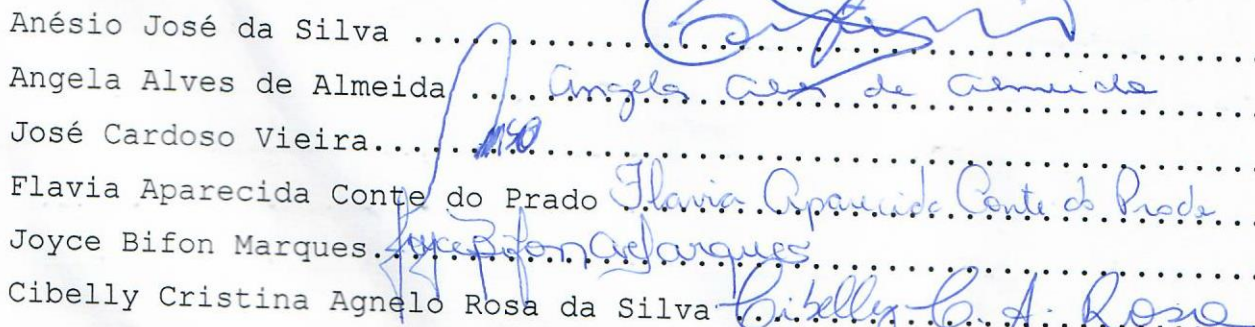 Anésio José da Silva ....................................................
Angela Alves de Almeida .... Angela Alves de Almeida
José Cardoso Vieira....................................................
Flavia Aparecida Conte do Prado Flavia Aparecida Conte do Prado
Joyce Bifon Marques. Joyce Bifon Marques
Cibelly Cristina Agnelo Rosa da Silva Cibelly C. A. Rosa